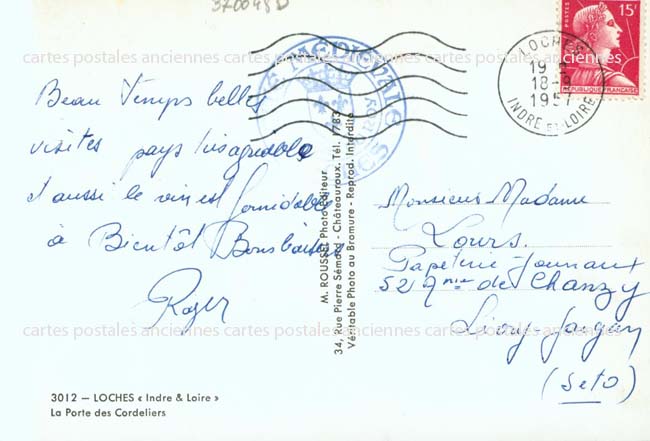 370048D
cartes postales anciennes cartes postales anciennes cartes postales anciennes
15F
POSTES
REPUBLIQUE FRANÇAISE
LOCHES
19
18
1957
INDRE ET LOIRE
MEDIEVALE
Beau Temps belles
visites pays très agréable
et aussi le vin est formidable
à Bientôt Bons baisers
Roger
M. ROUSSEL Photo-Editeur
34, Rue Pierre Sémard - Châteauroux. Tél. 1783
Véritable Photo au Bromure - Reprod. Interdite
Monsieur Madame
Lours.
Papeterie-Journaux
52 Ave de Chanzy
Livry-Gargan
(SetO)
cartes postales anciennes cartes postales anciennes cartes postales anciennes
3012 — LOCHES « Indre & Loire »
La Porte des Cordeliers